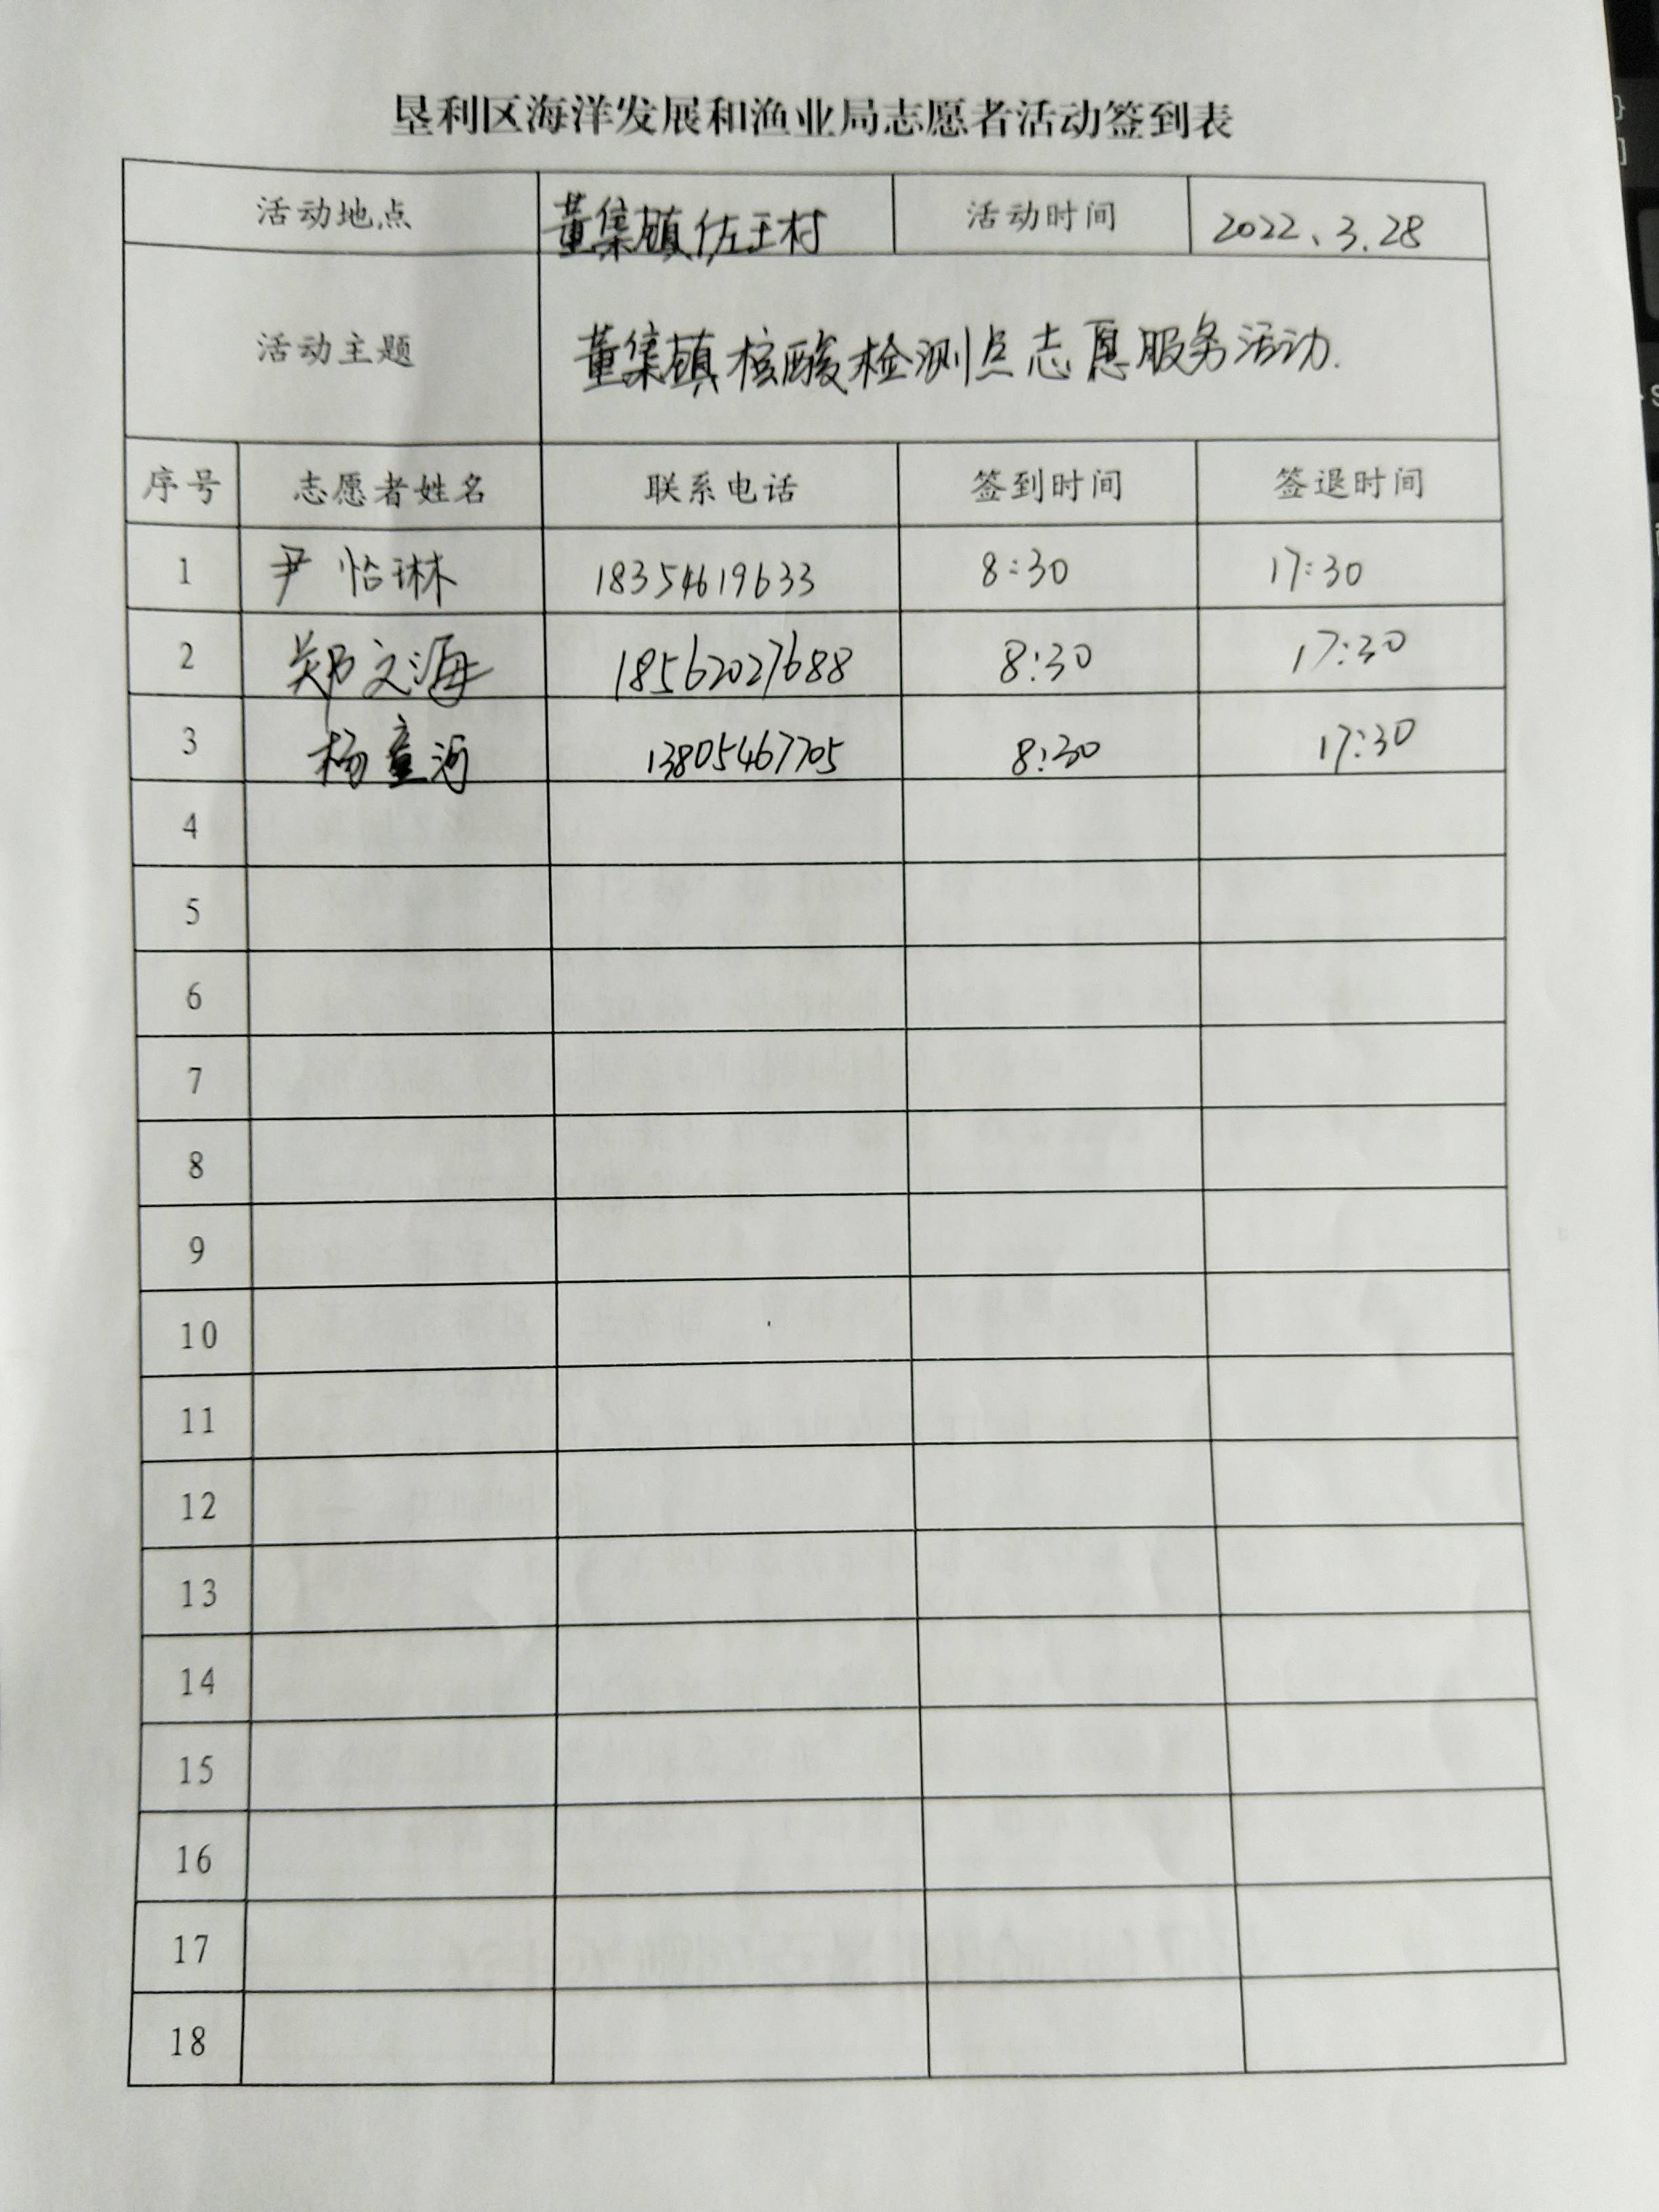 垦利区海洋发展和渔业局志愿者活动签到表
活动地点 董集镇佐王村 活动时间 2022、3.28
活动主题 董集镇核酸检测点志愿服务活动.
序号 志愿者姓名 联系电话 签到时间 签退时间
1 尹怡琳 18354619633 8:30 17:30
2 郑文海 18562027688 8:30 17:30
3 杨童河 13805467705 8:30 17:30
4
5
6
7
8
9
10
11
12
13
14
15
16
17
18